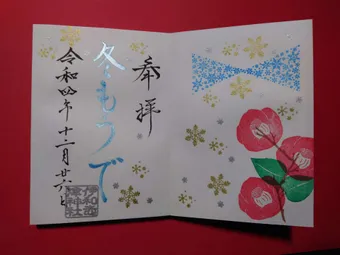 奉拝
冬もうで
令和四年十二月廿六日